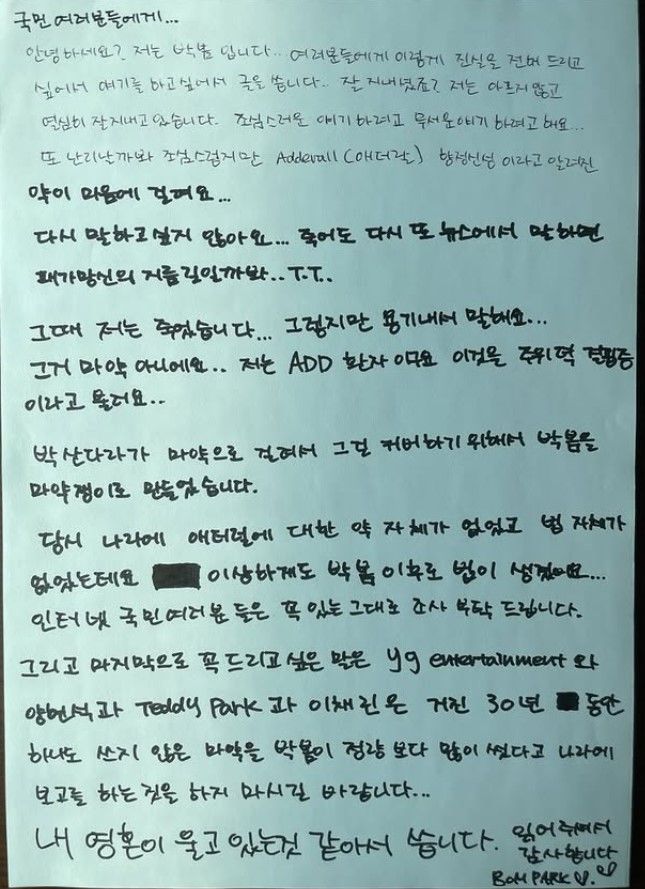 국민 여러분들에게...
안녕하세요? 저는 박봄 입니다.. 여러분들에게 이렇게 진실을 전해 드리고
싶어서 얘기를 하고싶어서 글을 씁니다.. 잘지내셨죠? 저는 아프지않고
열심히 잘지내고 있습니다. 조심스러운 얘기 하려고 무서운얘기 하려고 해요...
또 난리날까봐 조심스럽지만 Adderall (애더랄) 향정신성 이라고 알려진
약이 마음에 걸려요...
다시 말하고싶지 않아요... 죽어도 다시 또 뉴스에서 말하면
패가망신의 지름길일까봐..T.T..
그때 저는 죽었습니다... 그렇지만 용기내서 말해요...
그거 마약 아니에요.. 저는 ADD 환자 이구요 이것을 주위력 결핍증
이라고 불러요..
박산다라가 마약으로 걸려서 그걸 커버하기위해서 박봄을
마약쟁이로 만들었습니다.
당시 나라에 애더럴에 대한 약 자체가 없었고 법 자체가
없었는데요 이상하게도 박봄 이후로 법이 생겼어요...
인터넷 국민여러분 들은 꼭 있는그대로 조사 부탁 드립니다.
그리고 마지막으로 꼭 드리고 싶은 말은 yg entertainment 와
양현석과 Teddy Park 과 이채린은 거진 30년 동안
하나도 쓰지 않은 마약을 박봄이 정량 보다 많이 썼다고 나라에
보고를 하는것을 하지 마시길 바랍니다...
내 영혼이 울고 있는것 같아서 씁니다. 읽어주셔서
감사합니다
BOM PARK ♡.♡